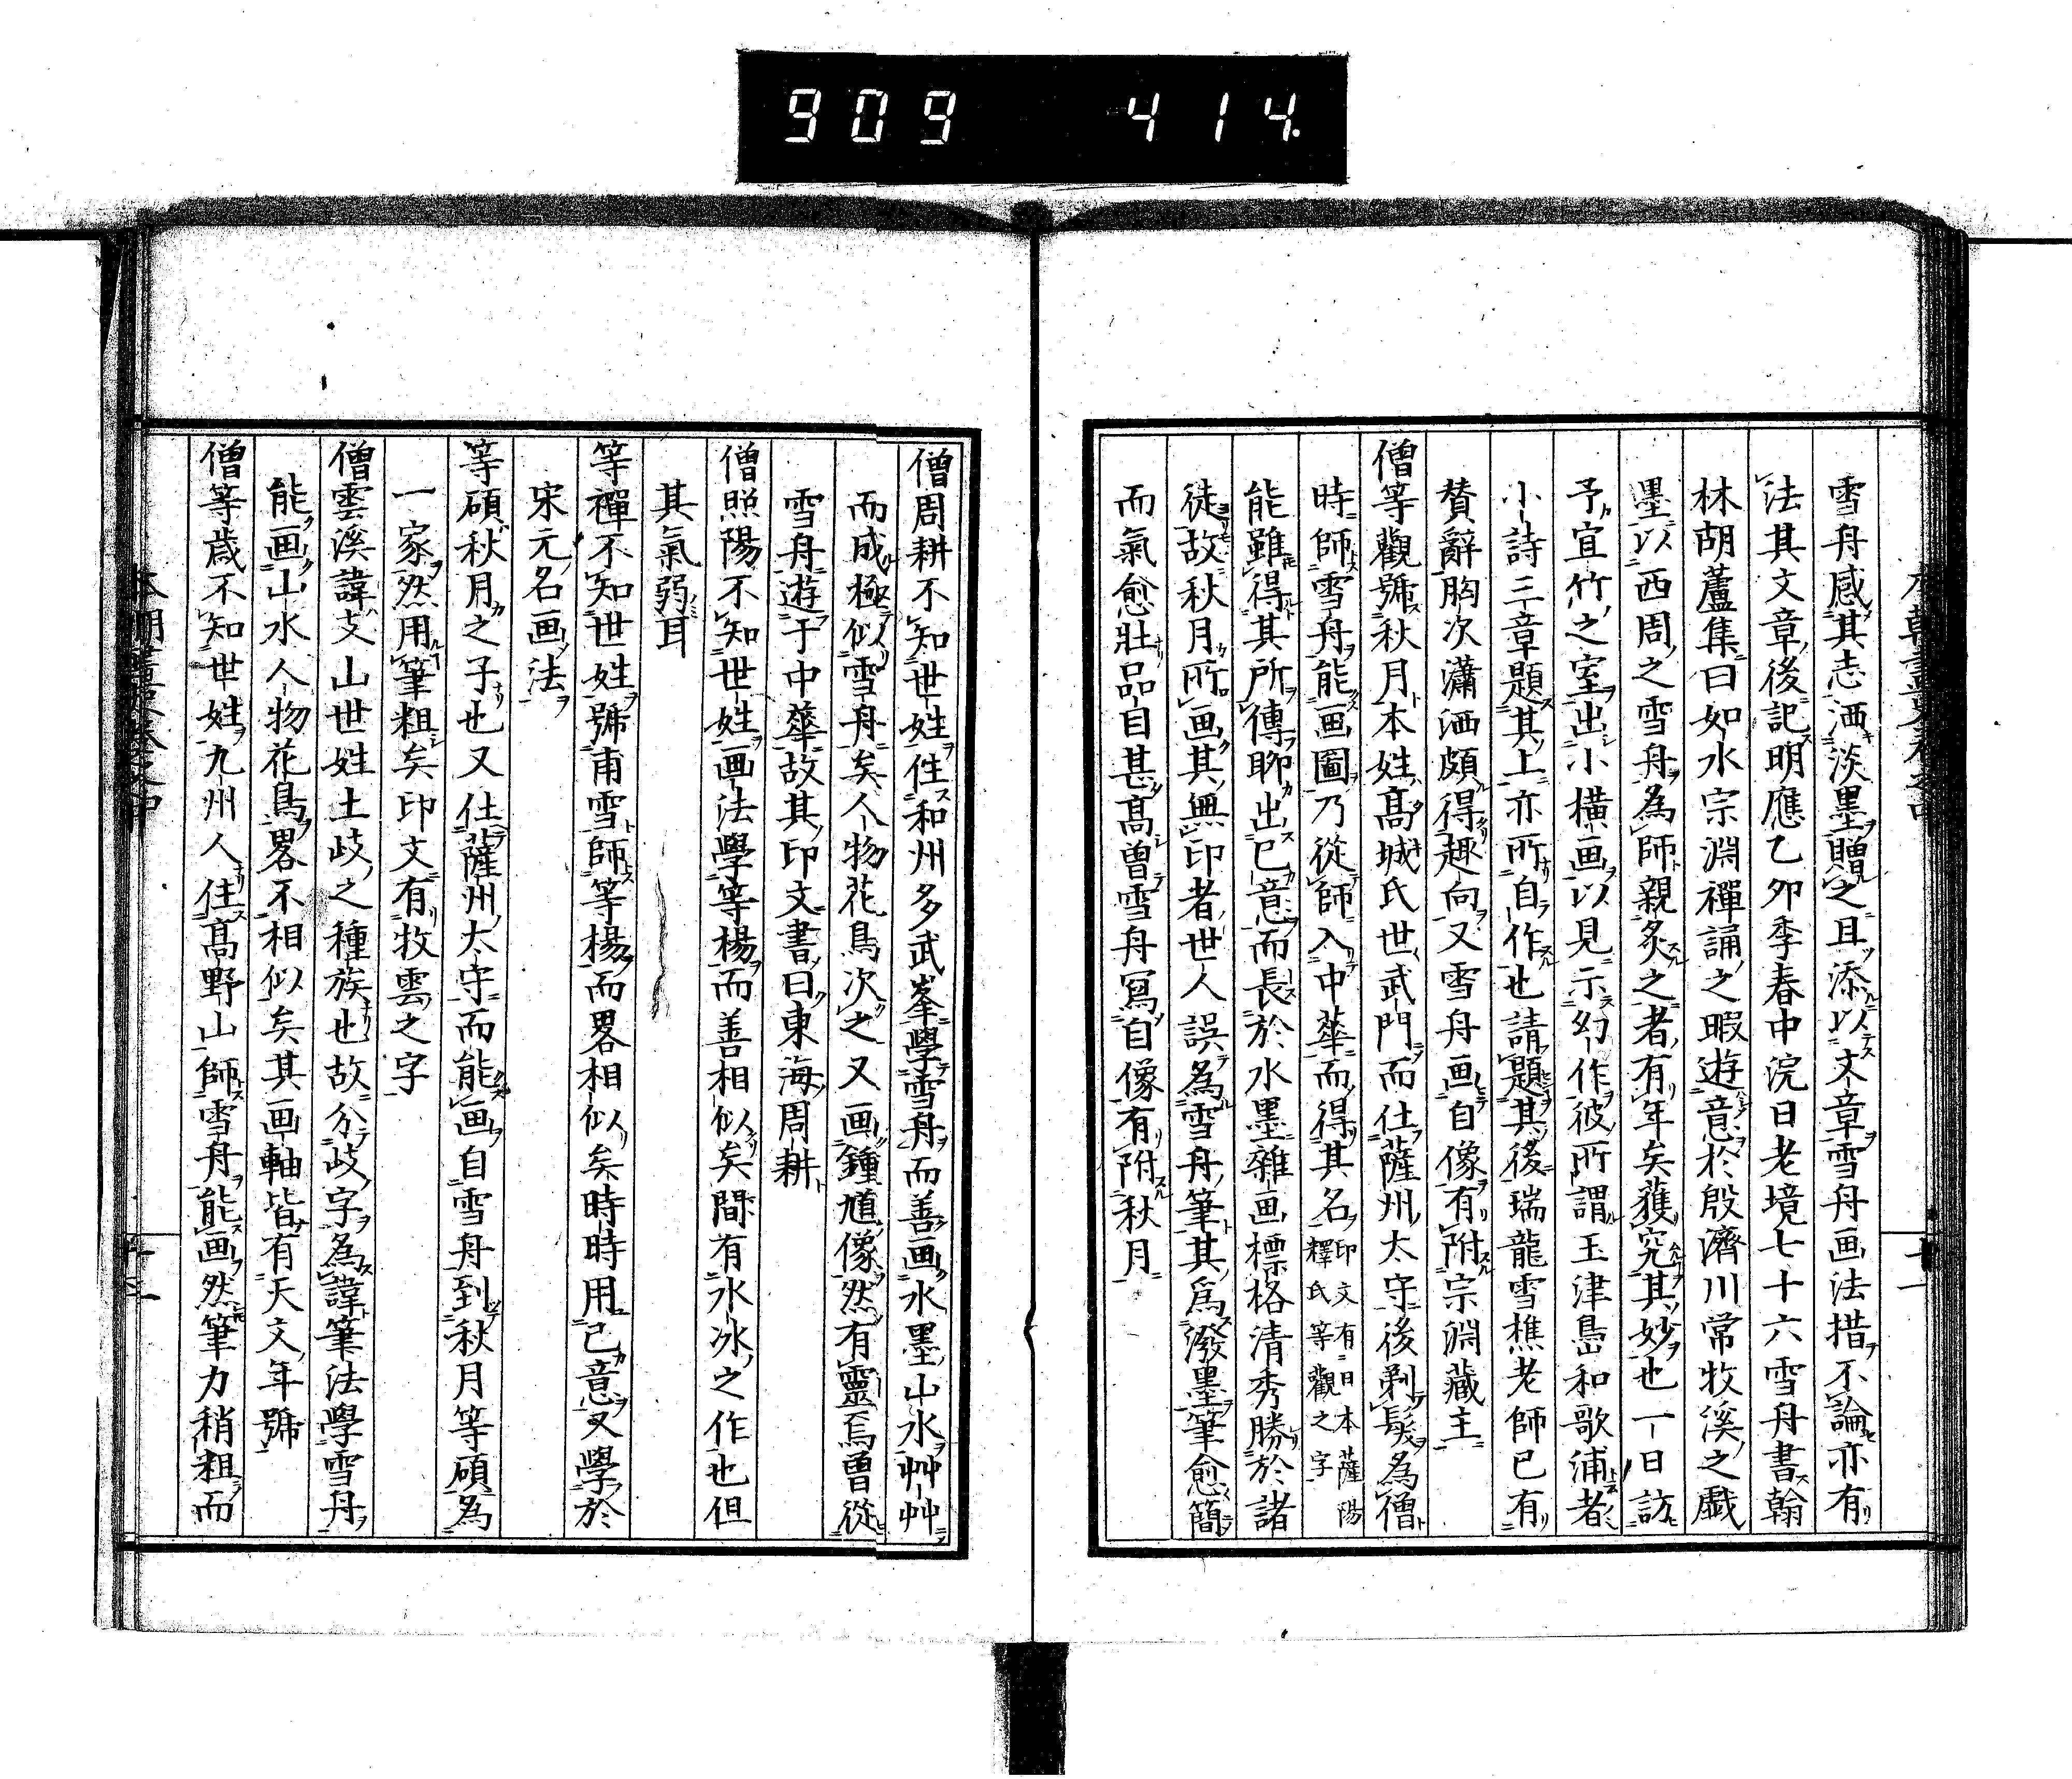 909 414.
雪舟感其志洒淡墨贈之且添以文章雪舟画法措不論亦有
法其文章後記明應乙卯季春中浣日老境七十六雪舟書翰
林胡蘆集曰如水宗淵禪誦之暇遊意於殷濟川常牧溪之戯
墨以西周之雪舟為師親炙之者有年矣獲究其妙也一日訪
予宜竹之室出小横画以見示幻作彼所謂玉津島和歌浦者
小詩三章題其上亦所自作也請題其後瑞龍雪樵老師已有
賛辭胸次瀟洒頗得趣向又雪舟画自像有附宗淵藏主
僧等觀號秋月本姓髙城氏世武門而仕薩州太守後剃髪為僧
時師雪舟能画圖乃從師入中華而得其名印文有日本薩陽釋氏等觀之字
能雖得其所傳聊出己意而長於水墨雜画標格清秀勝於諸
徒故秋月所画其無印者世人誤為雪舟筆其為潑墨筆愈簡
而氣愈壯品自甚髙曽雪舟寫自像有附秋月
僧周耕不知世姓住和州多武峯學雪舟而善画水墨山水艸艸
而成極似雪舟矣人物花鳥次之又画鍾馗像然有靈焉曽從
雪舟遊于中華故其印文書曰東海周耕
僧照陽不知世姓画法學等楊而善相似矣間有水氷之作也但
其氣弱耳
等禪不知世姓號甫雪師等楊而畧相似矣時時用己意又學於
宋元名画法
等碩秋月之子也又仕薩州太守而能画自雪舟到秋月等碩為
一家然用筆粗矣印文有牧雲之字
僧雲溪諱支山世姓土岐之種族也故分岐字為諱筆法學雪舟
能画山水人物花鳥畧不相似矣其画軸皆有天文年號
僧等歳不知世姓九州人住髙野山師雪舟能画然筆力稍粗而